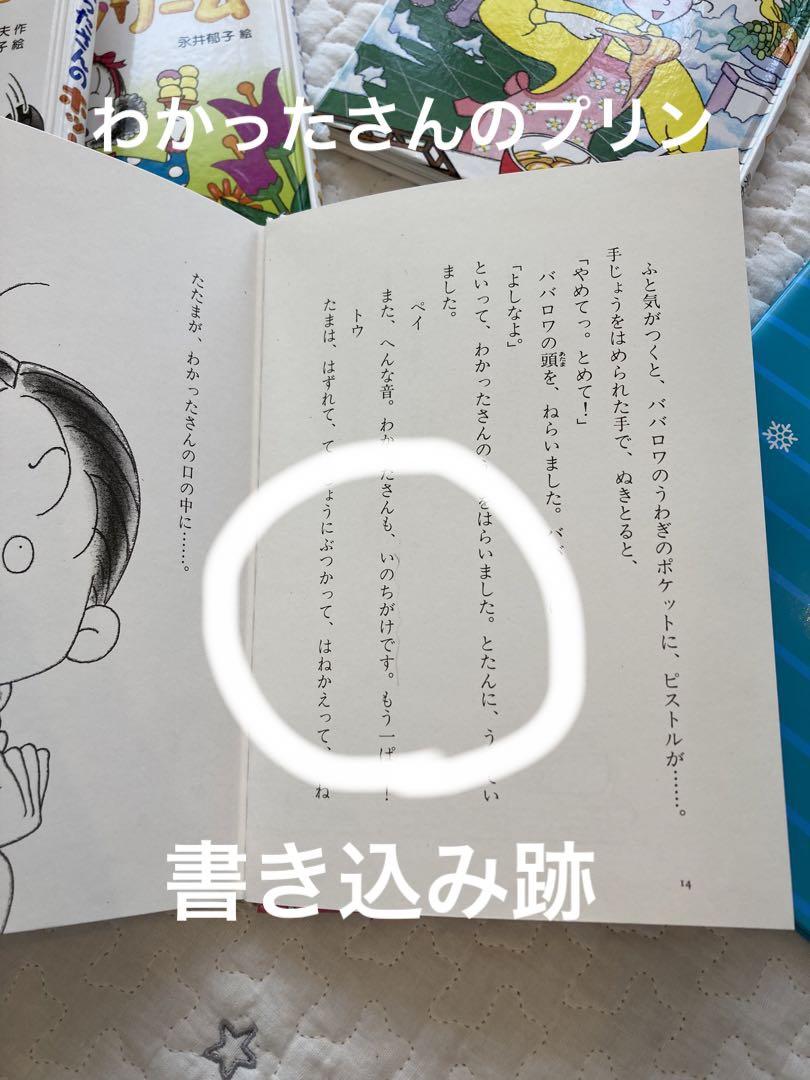 夫 作
子 絵
永井郁子 絵
わかったさんのプリン
ふと気がつくと、ババロワのうわぎのポケットに、ピストルが……。
手じょうをはめられた手で、ぬきとると、
「やめてっ。とめて!」
ババロワの頭を、ねらいました。バ
あたま
「よしなよ。」
といって、わかったさんの
をはらいました。とたんに、う
い
ました。
ペイ
また、へんな音。わか
たさんも、いのちがけです。もう一
!
トウ
たまは、はずれて、て
ょうにぶつかって、はねかえって、
ね
14
たたまが、わかったさんの口の中に……。
書き込み跡